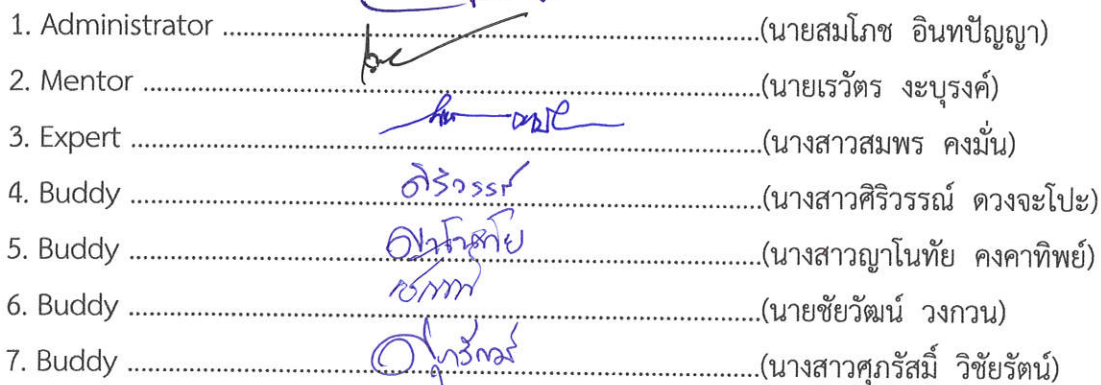 1. Administrator ........................................................(นายสมโภช อินทปัญญา)
2. Mentor ........................................................(นายเรวัตร งะบุรงค์)
3. Expert ........................................................(นางสาวสมพร คงมั่น)
4. Buddy ............ศิริวรรณ์............(นางสาวศิริวรรณ์ ดวงจะโปะ)
5. Buddy ............ญาโนทัย............(นางสาวญาโนทัย คงคาทิพย์)
6. Buddy ........................................................(นายชัยวัฒน์ วงกวน)
7. Buddy ........................................................(นางสาวศุภรัสมิ์ วิชัยรัตน์)